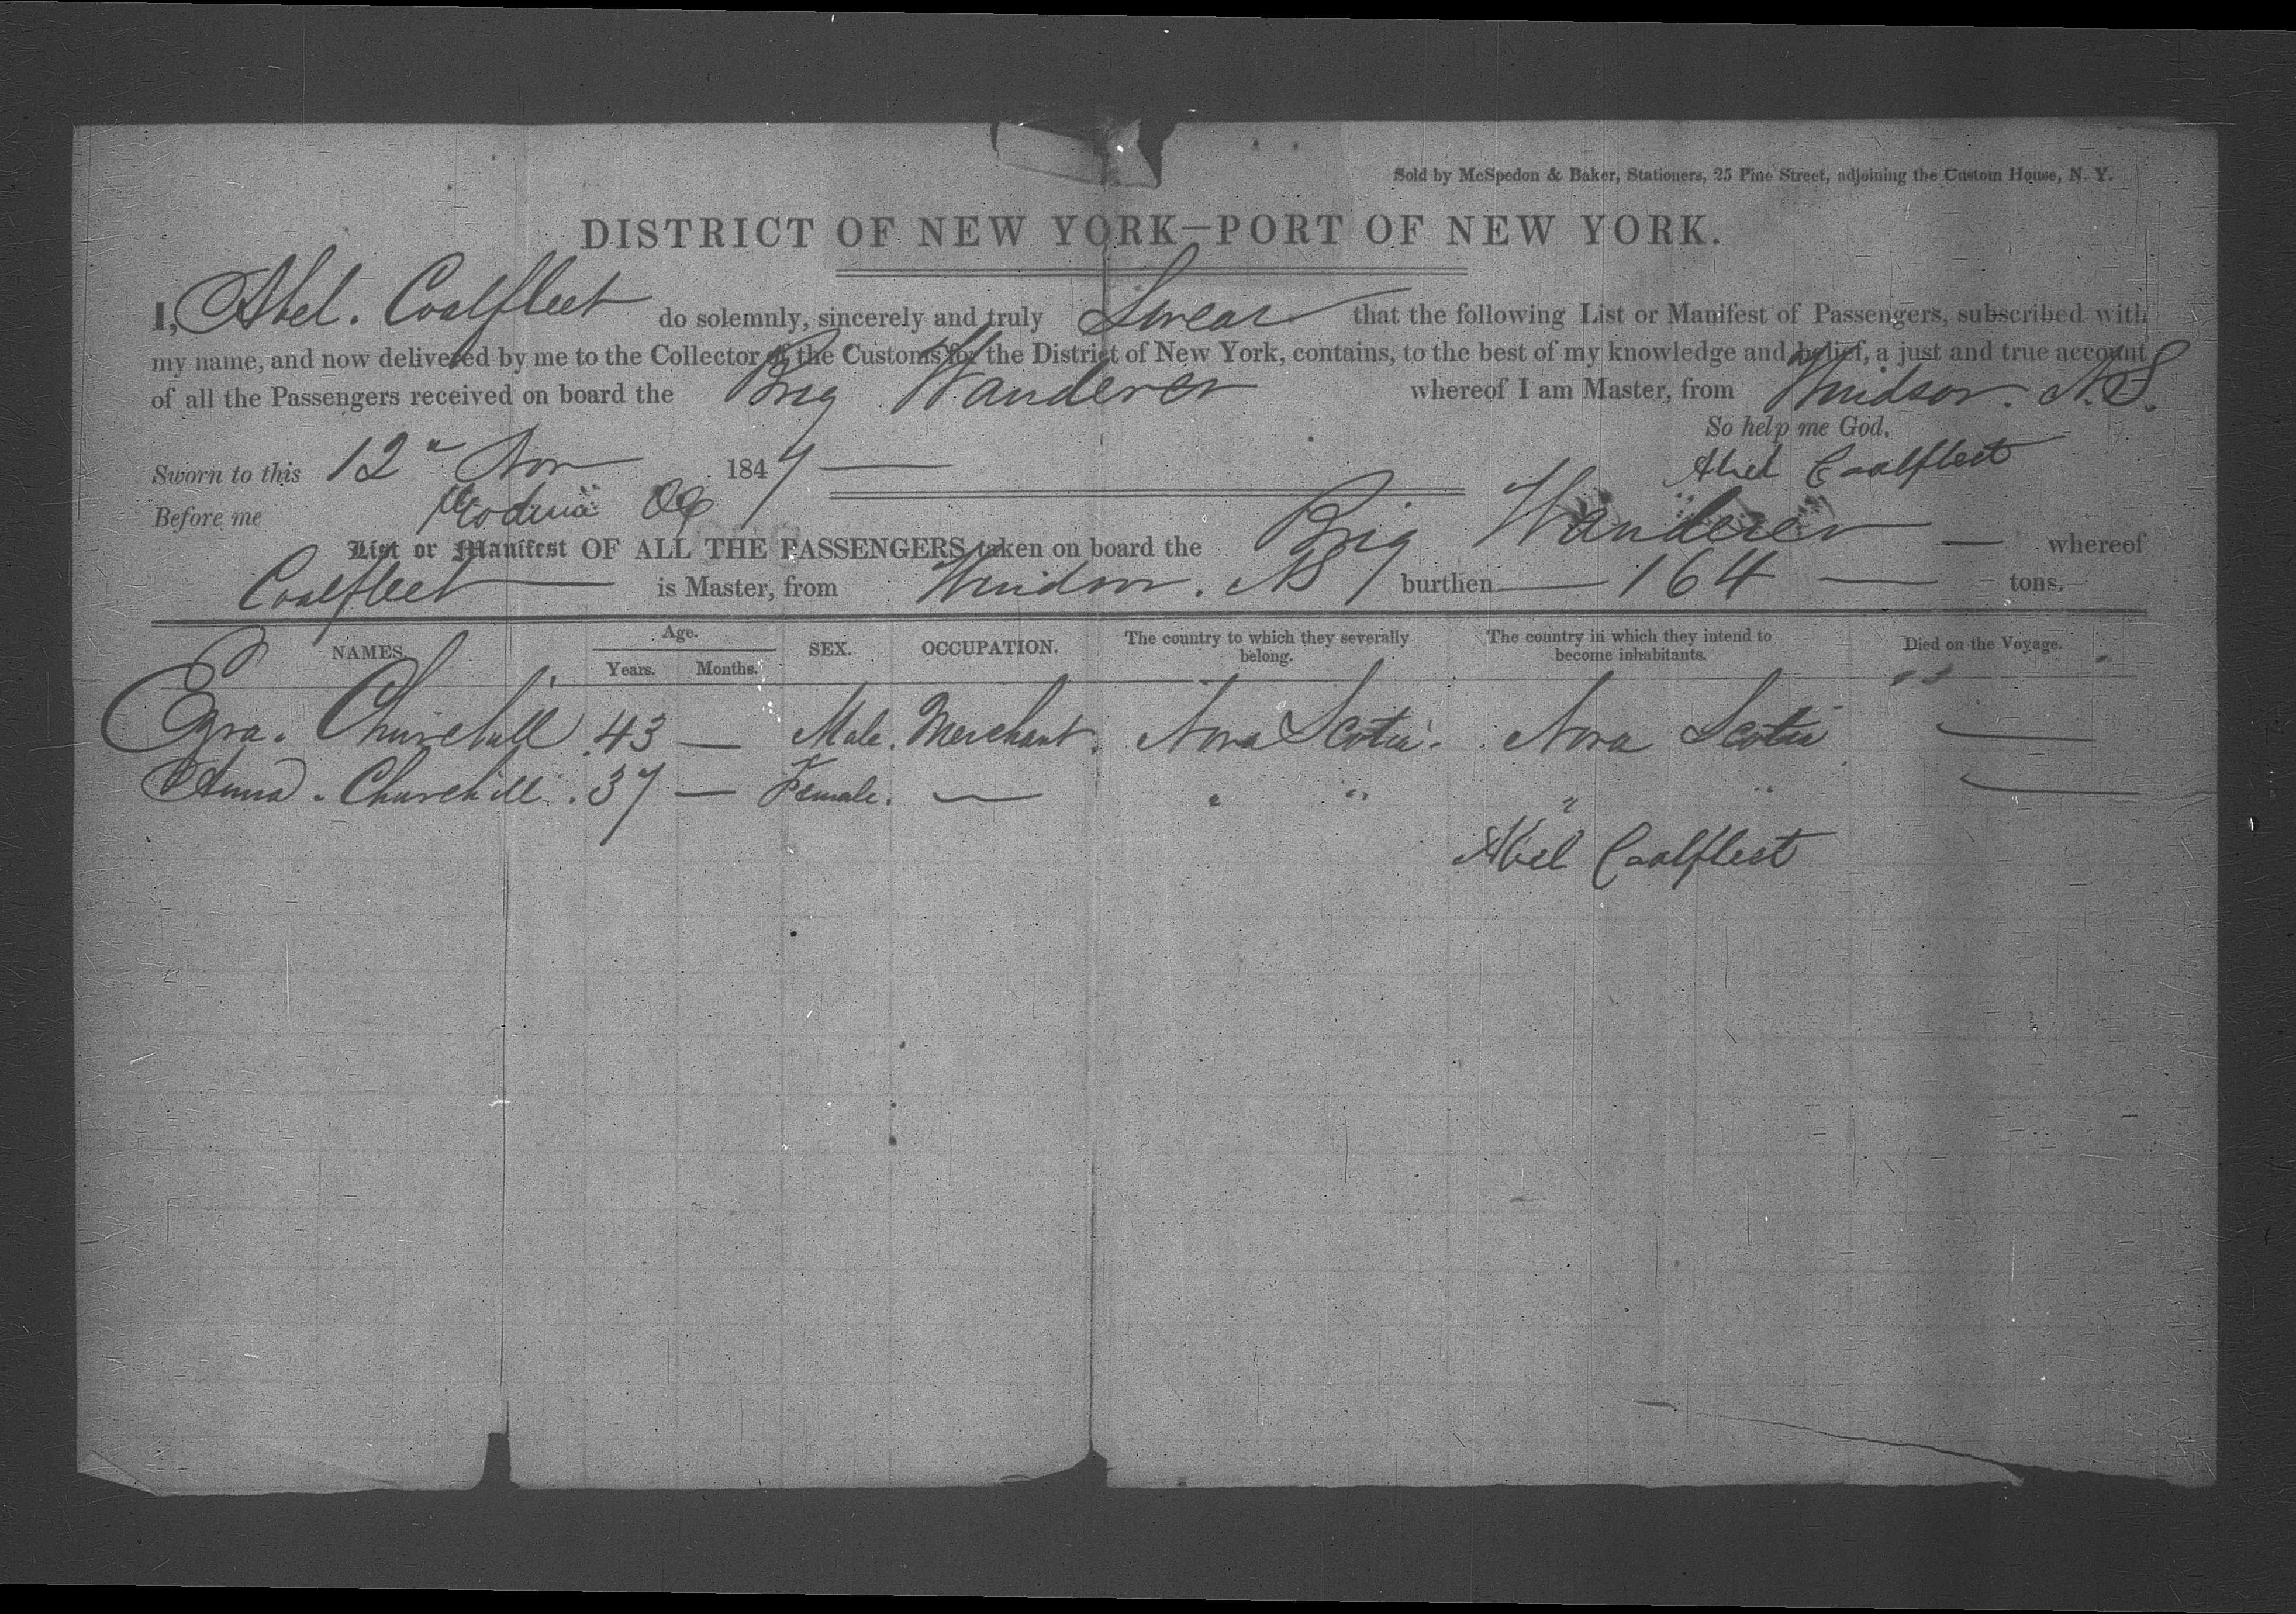 Sold by McSpedon & Baker, Stationers, 25 Pine Street, adjoining the Custom House, N. Y.
DISTRICT OF NEW YORK—PORT OF NEW YORK.
I, Abel. Coalfleet do solemnly, sincerely and truly Swear that the following List or Manifest of Passengers, subscribed with
my name, and now delivered by me to the Collector of the Customs for the District of New York, contains, to the best of my knowledge and belief, a just and true account
of all the Passengers received on board the Brig Wanderer whereof I am Master, from Windsor. N.S.
So help me God.
Sworn to this 12" Nov 1847 Abel Coalfleet
Before me
List or Manifest OF ALL THE PASSENGERS taken on board the Brig Wanderer — whereof
Coalfleet is Master, from Windsor. NS burthen 164 tons.
NAMES. Age. Years. Months. SEX. OCCUPATION. The country to which they severally belong. The country in which they intend to become inhabitants. Died on the Voyage.
Ezra. Churchill. 43 — Male. Merchant. Nova Scotia. Nova Scotia —
Anna. Churchill. 37 — Female. — " " " " —
Abel Coalfleet